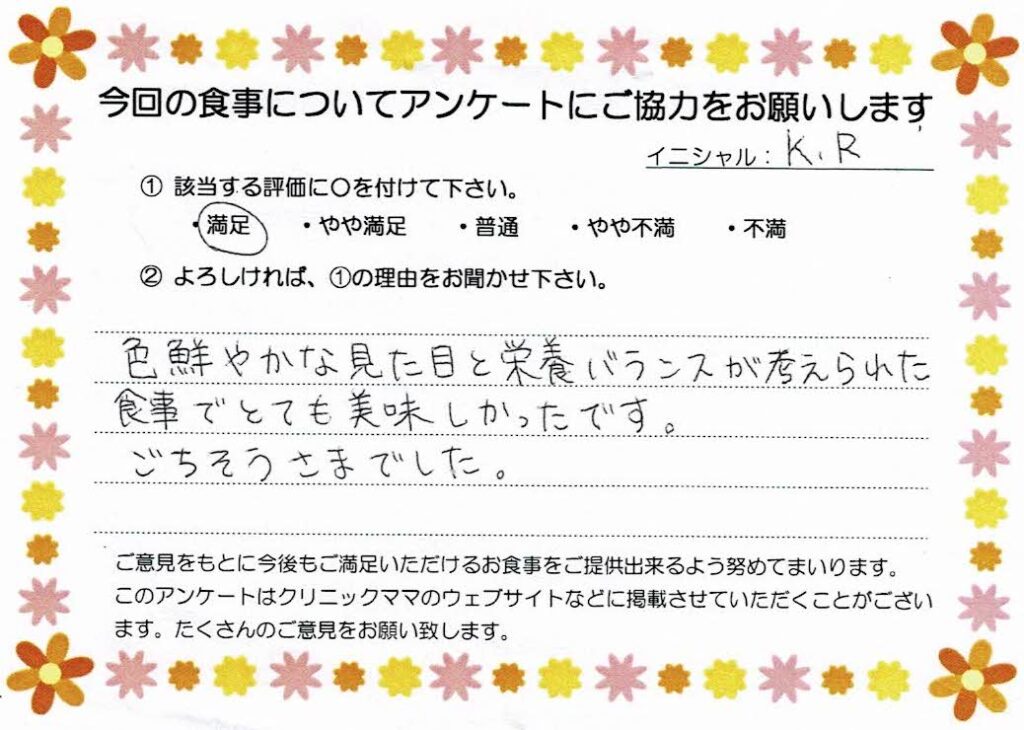 今回の食事についてアンケートにご協力をお願いします
イニシャル：K、R
① 該当する評価に〇を付けて下さい。
・満足 ・やや満足 ・普通 ・やや不満 ・不満
② よろしければ、①の理由をお聞かせ下さい。
色鮮やかな見た目と栄養バランスが考えられた
食事でとても美味しかったです。
ごちそうさまでした。
ご意見をもとに今後もご満足いただけるお食事をご提供出来るよう努めてまいります。
このアンケートはクリニックママのウェブサイトなどに掲載させていただくことがござい
ます。たくさんのご意見をお願い致します。